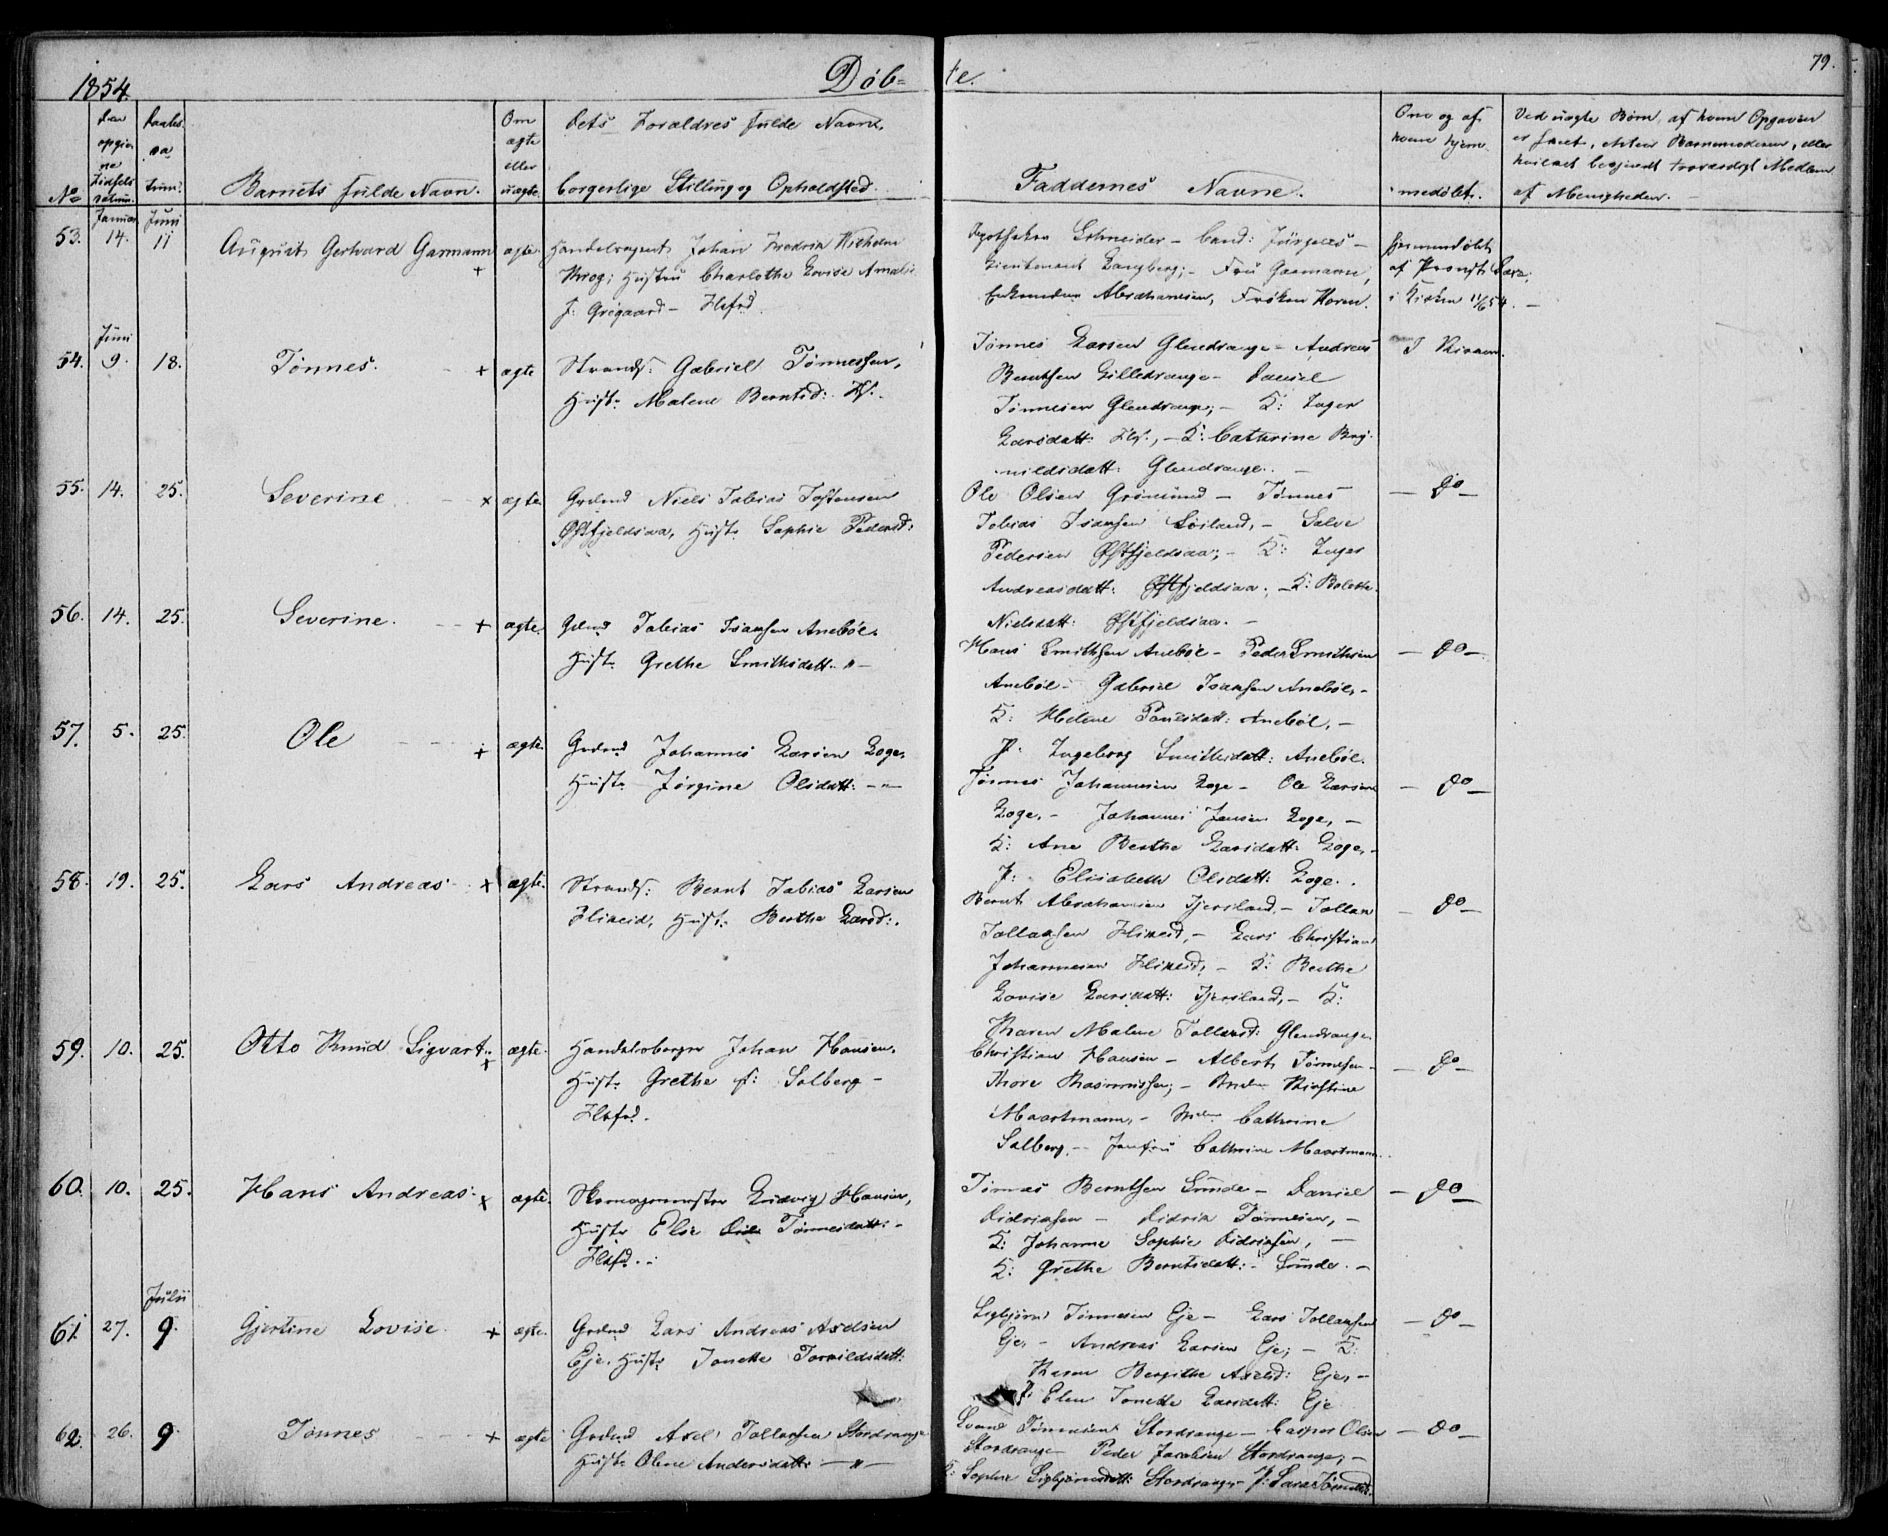 1854.
Døb-
te.
79.
No
Den opgivne Fødselsdatum.
Daabsdatum.
Barnets fulde Navn.
Om ægte eller uægte.
Dets Forældres fulde Navne,
borgerlige Stilling og Opholdsted.
Faddernes Navne.
Om og af hvem hjemmedøbt.
Ved uægte Børn, af hvem Opgaven
er skeet, enten Barnemoderen, eller
hvilket besynderligt troværdigt Medlem
af Menigheden. -
Januar Juni
53. 14. 11 August Gerhard Garmann + ægte. Handelsagent Johan Fredrik Vilhelm
Krog; Hustru Charlotte Lovise Amalie
f: Grisgaard - Flkfd.
Apotheker Schneider - Cand: Jürgens -
Lieutenant Langberg; - Fru Garmann,
Enkemadme Abrahamsen, Frøken Horn.
hjemmedøbt
af Provst
i Kirken 11/6 54. -
Juni
54. 9. 18. Tønnes. + ægte Strands: Gabriel Tønnessen,
Hust: Malene Berntsd: Kf.
Tønnes Larsen Glendrange - Andreas
Berntsen Lilledrange - Daniel
Tønnesen Glendrange; - K: Inger
Larsdatt: Flkf, - K: Cathrine
Glendrange. -
I Kirken.
55. 14. 25. Severine. - + ægte. Grdmd Niels Tobias Tostensen
Østfjeldsaa, Hust: Sophie Pedersd:
Ole Olsen Grimund - Tønnes
Tobias Isaksen Loiland, - Salve
Pedersen Østfjeldsaa; - K: Inger
Andreasdatt: Østfjeldsaa; - K: Bolette
Nielsdatt: Østfjeldsaa. -
- do -
56. 14. 25. Severine. - + ægte. Grdmd Tobias Isaksen Anebøe.
Hust: Grethe Smithsdatt: " -
Hans Smithsen Anebøe - Peder Smithsen
Anebøl - Gabriel Isaksen Anebøl, -
K: Helene Poulsdatt: Anebøl, -
P: Ingeborg Smithsdatt: Anebøl.
- do -
57. 5. 25. Ole - + ægte. Grdmd Johannes Larsen Loge,
Hust: Jørgine Olsdatt: - " -
Tønnes Johannesen Loge - Ole Larsen
Loge, - Johannes Jansen Loge, -
K: Ane Berthe Larsdatt: Loge, -
P: Elisabeth Olsdatt: Loge. .
- do -
58. 19. 25. Lars Andreas. + ægte. Strands: Bernt Tobias Larsen
Flikeid, Hust: Berthe Larsd:.
Bernt Abrahamsen Tjersland, - Tollak
Tollaksen Flikeid, - Lars Christian
Johannesen Flikeid, - K: Berthe
Lovise Larsdatt: Tjersland, - K:
Karen Malene Tollaksd: Glendrange.
- do -
59. 10. 25. Otto Knud Sigvart. + ægte. Handelsborger Johan Hansen,
Hust: Grethe f: Salberg -
Flkfd.
Christian Hansen - Albert Tønnessen -
Thore Rasmussen; - Kirstine
Maartmann, - Cathrine
Salberg. - Jomfru Cathrine Maartmann.
- do -
60. 10. 25. Hans Andreas. + ægte. Skomagermester Ludvig Hansen,
Hustr Else Tønnesdatt: -
Flkfd. -
Tønnes Berntsen Sunde - Daniel
Didriksen - Didrik Tønnesen, -
K: Johanne Sophie Didriksen, -
K: Grethe Berntsdatt: - Sunde. -
- do -
Julii
61. 27. 9. Gjertine Lovise. + ægte. Grdmd Lars Andreas Axelsen
Eje. Hustr Tonette Torkildsdatt:
Sigbjørn Tønnesen Eje - Lars Tollaksen
Eje, - Andreas Larsen Eje; - K:
Karen Bergitte Axelsd: Eje, -
P: Elen Tonette Larsdatt: Eje
- do -
62. 26. 9. Tønnes - + ægte Grdmd Axel Tollaksen Stordrange
Hust: Olene Andersdatt: - " -
Svend Tønnesen Stordrange - Casper Olsen
Stordrange - Peder Jacobsen Stordrange; -
K: Sophie Sigbjørnsdatt: Stordrange - P: Sara Tønnesd:
- do -